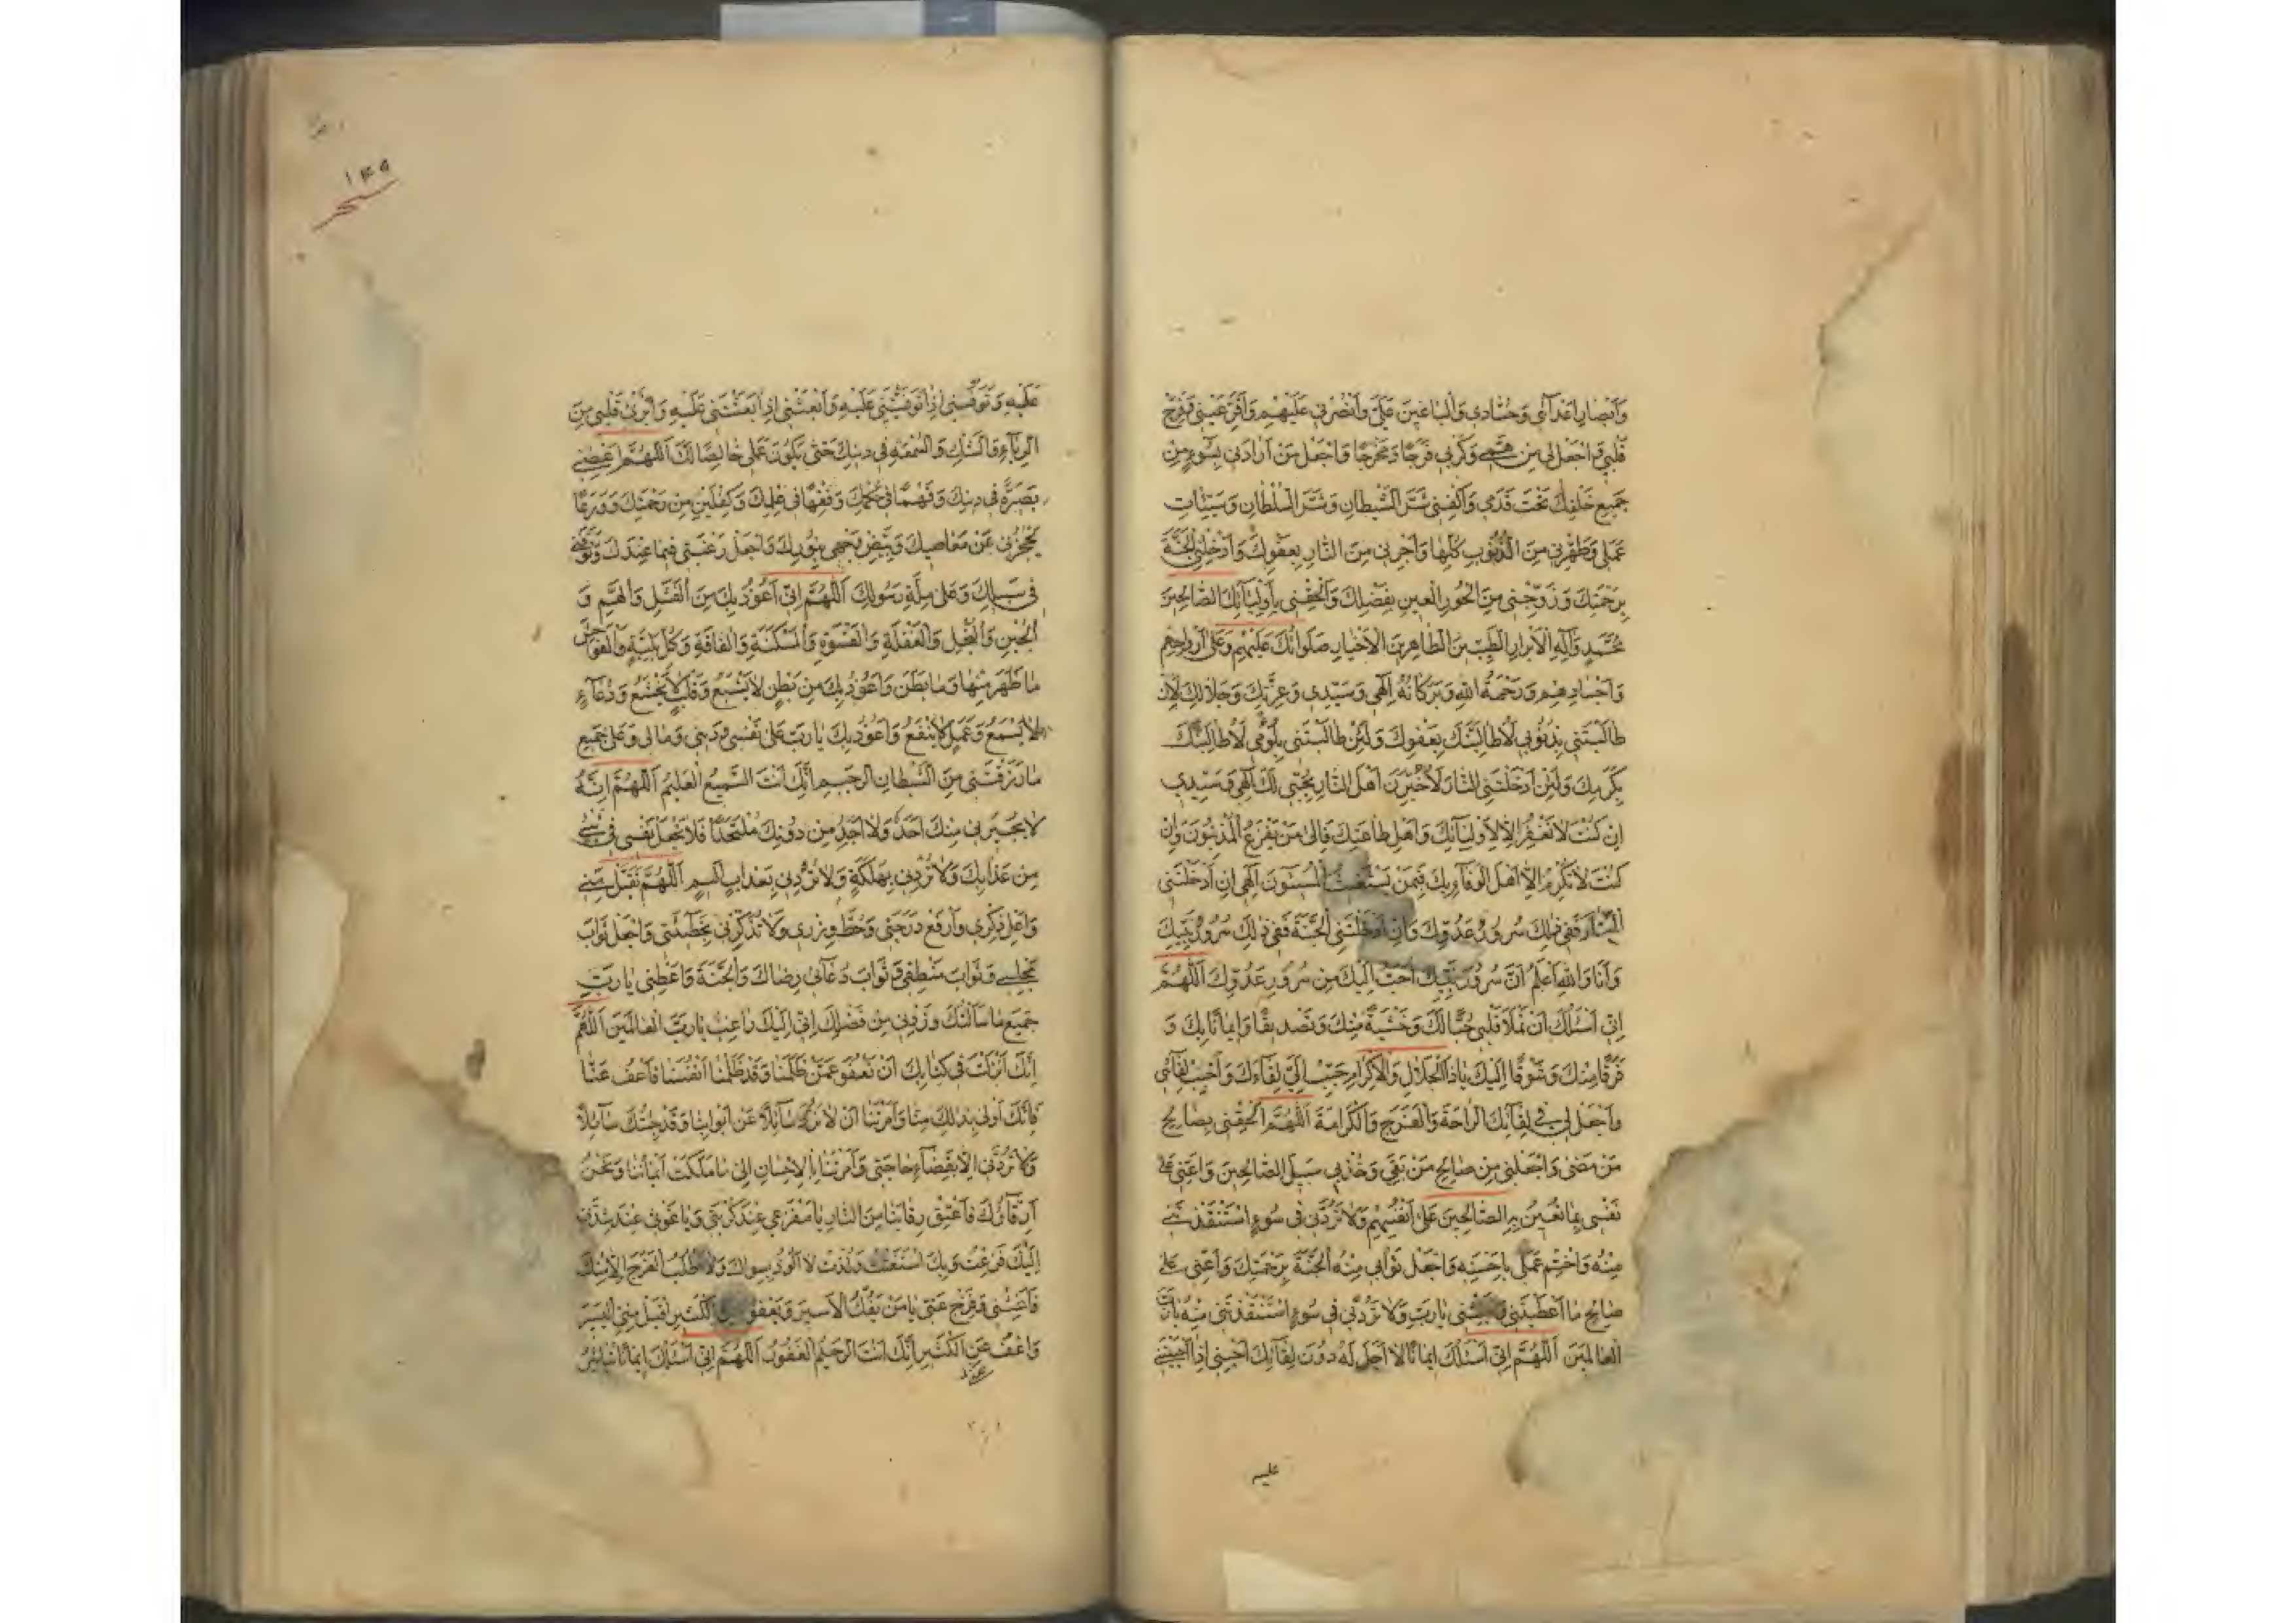 وَاَبْصارِ اَعْدآئي وَحُسّادي وَالْباغينَ عَلَيَّ وَانْصُرْني عَلَيْهِمْ وَاَقِرَّ عَيْني وَفَرِّحْ
قَلْبي وَاجْعَلْ لي مِنْ هَمّي وَكَرْبي فَرَجًا وَمَخْرَجًا وَاجْعَلْ مَنْ اَرادَني بِسُوءٍ مِنْ
جَميعِ خَلْقِكَ تَحْتَ قَدَمَيَّ وَاكْفِني شَرَّ الشَّيْطانِ وَشَرَّ السُّلْطانِ وَسَيِّئاتِ
عَمَلي وَطَهِّرْني مِنَ الذُّنُوبِ كُلِّها وَاَجِرْني مِنَ النّارِ بِعَفْوِكَ وَاَدْخِلْنِي الْجَنَّةَ
بِرَحْمَتِكَ وَزَوِّجْني مِنَ الْحُورِ الْعينِ بِفَضْلِكَ وَاَلْحِقْني بِاَوْلِيآئِكَ الصّالِحينَ
مُحَمَّدٍ وَآلِهِ الْاَبْرارِ الطَّيِّبينَ الطّاهِرينَ الْاَخْيارِ صَلَواتُكَ عَلَيْهِمْ وَعَلى اَرْواحِهِمْ
وَاَجْسادِهِمْ وَرَحْمَةُ اللهِ وَبَرَكاتُهُ اِلهي وَسَيِّدي وَعِزَّتِكَ وَجَلالِكَ لَاِنْ
طالَبْتَني بِذُنُوبي لَاُطالِبَنَّكَ بِعَفْوِكَ وَلَئِنْ طالَبْتَني بِلُؤْمي لَاُطالِبَنَّكَ
بِكَرَمِكَ وَلَئِنْ اَدْخَلْتَنِي النّارَ لَاُخْبِرَنَّ اَهْلَ النّارِ بِحُبّي لَكَ اِلهي وَسَيِّدي
اِنْ كُنْتَ لا تَغْفِرُ اِلّا لِاَوْلِيآئِكَ وَاَهْلِ طاعَتِكَ فَاِلى مَنْ يَفْزَعُ الْمُذْنِبُونَ وَاِنْ
كُنْتَ لا تُكْرِمُ اِلّا اَهْلَ الْوَفآءِ بِكَ فَبِمَنْ يَسْتَغيثُ الْمُسيئُونَ اِلهي اِنْ اَدْخَلْتَنِي
النّارَ فَفي ذلِكَ سُرُورُ عَدُوِّكَ وَاِنْ اَدْخَلْتَنِي الْجَنَّةَ فَفي ذلِكَ سُرُورُ نَبِيِّكَ
وَاَنَا وَاللهِ اَعْلَمُ اَنَّ سُرُورَ نَبِيِّكَ اَحَبُّ اِلَيْكَ مِنْ سُرُورِ عَدُوِّكَ اَللّهُمَّ
اِنّي اَسْئَلُكَ اَنْ تَمْلَأَ قَلْبي حُبًّا لَكَ وَخَشْيَةً مِنْكَ وَتَصْديقًا وَايمانًا بِكَ وَ
فَرَقًا مِنْكَ وَشَوْقًا اِلَيْكَ يا ذَا الْجَلالِ وَالْاِكْرامِ حَبِّبْ اِلَيَّ لِقآءَكَ وَاَحْبِبْ لِقآئي
وَاجْعَلْ لي في لِقآئِكَ الرّاحَةَ وَالْفَرَجَ وَالْكَرامَةَ اَللّهُمَّ اَلْحِقْني بِصالِحِ
مَنْ مَضى وَاجْعَلْني مِنْ صالِحِ مَنْ بَقِيَ وَخُذْ بي سَبيلَ الصّالِحينَ وَاَعِنّي عَلى
نَفْسي بِما تُعينُ بِهِ الصّالِحينَ عَلى اَنْفُسِهِمْ وَلا تَرُدَّني في سُوءٍ اسْتَنْقَذْتَني
مِنْهُ وَاخْتِمْ عَمَلي بِاَحْسَنِهِ وَاجْعَلْ ثَوابي مِنْهُ الْجَنَّةَ بِرَحْمَتِكَ وَاَعِنّي عَلى
صالِحِ ما اَعْطَيْتَني وَثَبِّتْني يا رَبِّ وَلا تَرُدَّني في سُوءٍ اسْتَنْقَذْتَني مِنْهُ يا رَبَّ
الْعالَمينَ اَللّهُمَّ اِنّي اَسْئَلُكَ ايمانًا لا اَجَلَ لَهُ دُونَ لِقآئِكَ اَحْيِني اِذا اَحْيَيْتَني
عليه
١٤٩
عَلَيْهِ وَتَوَفَّني اِذا تَوَفَّيْتَني عَلَيْهِ وَابْعَثْني اِذا بَعَثْتَني عَلَيْهِ وَاَبْرِئْ قَلْبي مِنَ
الرِّيآءِ وَالشَّكِّ وَالسُّمْعَةِ في دينِكَ حَتّى يَكُونَ عَمَلي خالِصًا لَكَ اَللّهُمَّ اَعْطِني
بَصيرَةً في دينِكَ وَفَهْمًا في حُكْمِكَ وَفِقْهًا في عِلْمِكَ وَكِفْلَيْنِ مِنْ رَحْمَتِكَ وَوَرَعًا
يَحْجُزُني عَنْ مَعاصيكَ وَبَيِّضْ وَجْهي بِنُورِكَ وَاجْعَلْ رَغْبَتي فيما عِنْدَكَ وَتَوَفَّني
في سَبيلِكَ وَعَلى مِلَّةِ رَسُولِكَ اَللّهُمَّ اِنّي اَعُوذُ بِكَ مِنَ الْفَشَلِ وَالْهَمِّ وَ
الْجُبْنِ وَالْبُخْلِ وَالْغَفْلَةِ وَالْقَسْوَةِ وَالْمَسْكَنَةِ وَالْفاقَةِ وَكُلِّ بَلِيَّةٍ وَالْفَواحِشِ
ما ظَهَرَ مِنْها وَما بَطَنَ وَاَعُوذُ بِكَ مِنْ بَطْنٍ لا يَشْبَعُ وَقَلْبٍ لا يَخْشَعُ وَدُعآءٍ
لا يُسْمَعُ وَعَمَلٍ لا يَنْفَعُ وَاَعُوذُ بِكَ يا رَبِّ عَلى نَفْسي وَديني وَمالي وَعَلى جَميعِ
ما رَزَقْتَني مِنَ الشَّيْطانِ الرَّجيمِ اِنَّكَ اَنْتَ السَّميعُ الْعَليمُ اَللّهُمَّ اِنَّهُ
لا يُجيرُني مِنْكَ اَحَدٌ وَلا اَجِدُ مِنْ دُونِكَ مُلْتَحَدًا فَلا تَجْعَلْ نَفْسي في شَيْءٍ
مِنْ عَذابِكَ وَلا تَرُدَّني بِهَلَكَةٍ وَلا تَرُدَّني بِعَذابٍ اَليمٍ اَللّهُمَّ تَقَبَّلْ مِنّي
وَاَعْلِ ذِكْري وَارْفَعْ دَرَجَتي وَحُطَّ وِزْري وَلا تَذْكُرْني بِخَطيئَتي وَاجْعَلْ ثَوابَ
مَجْلِسي وَثَوابَ مَنْطِقي وَثَوابَ دُعآئي رِضاكَ وَالْجَنَّةَ وَاَعْطِني يا رَبِّ
جَميعَ ما سَاَلْتُكَ وَزِدْني مِنْ فَضْلِكَ اِنّي اِلَيْكَ راغِبٌ يا رَبَّ الْعالَمينَ اَللّهُمَّ
اِنَّكَ اَنْزَلْتَ في كِتابِكَ اَنْ نَعْفُوَ عَمَّنْ ظَلَمَنا وَقَدْ ظَلَمْنا اَنْفُسَنا فَاعْفُ عَنّا
فَاِنَّكَ اَوْلى بِذلِكَ مِنّا وَاَمَرْتَنا اَنْ لا نَرُدَّ سآئِلاً عَنْ اَبْوابِنا وَقَدْ جِئْتُكَ سآئِلاً
وَلا تَرُدَّني اِلّا بِقَضآءِ حاجَتي وَاَمَرْتَنا بِالْاِحْسانِ اِلى ما مَلَكَتْ اَيْمانُنا وَنَحْنُ
اَرِقّآؤُكَ فَاَعْتِقْ رِقابَنا مِنَ النّارِ يا مَفْزَعي عِنْدَ كُرْبَتي وَيا غَوْثي عِنْدَ شِدَّتي
اِلَيْكَ فَزِعْتُ وَبِكَ اسْتَغَثْتُ وَلُذْتُ لا اَلُوذُ بِسِواكَ وَلا اَطْلُبُ الْفَرَجَ اِلّا مِنْكَ
فَاَغِثْني وَفَرِّجْ عَنّي يا مَنْ يَفُكُّ الْاَسيرَ وَيَعْفُو عَنِ الْكَثيرِ اقْبَلْ مِنِّي الْيَسيرَ
وَاعْفُ عَنِّي الْكَثيرَ اِنَّكَ اَنْتَ الرَّحيمُ الْغَفُورُ اَللّهُمَّ اِنّي اَسْئَلُكَ ايمانًا تُباشِرُ